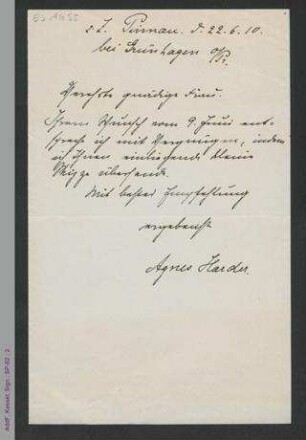 z. Z. Pinnau. d. 22.6.10.
bei Grünhagen o/Pr.
Verehrte gnädige Frau.
Ihrem Wunsch vom 9. Juni ent-
spreche ich mit Vergnügen, indem
ich Ihnen einliegende kleine
Skizze übersende.
Mit bester Empfehlung
ergebenst
Agnes Harder.
AddF, Kassel, Sign.: SP-02 ; 2